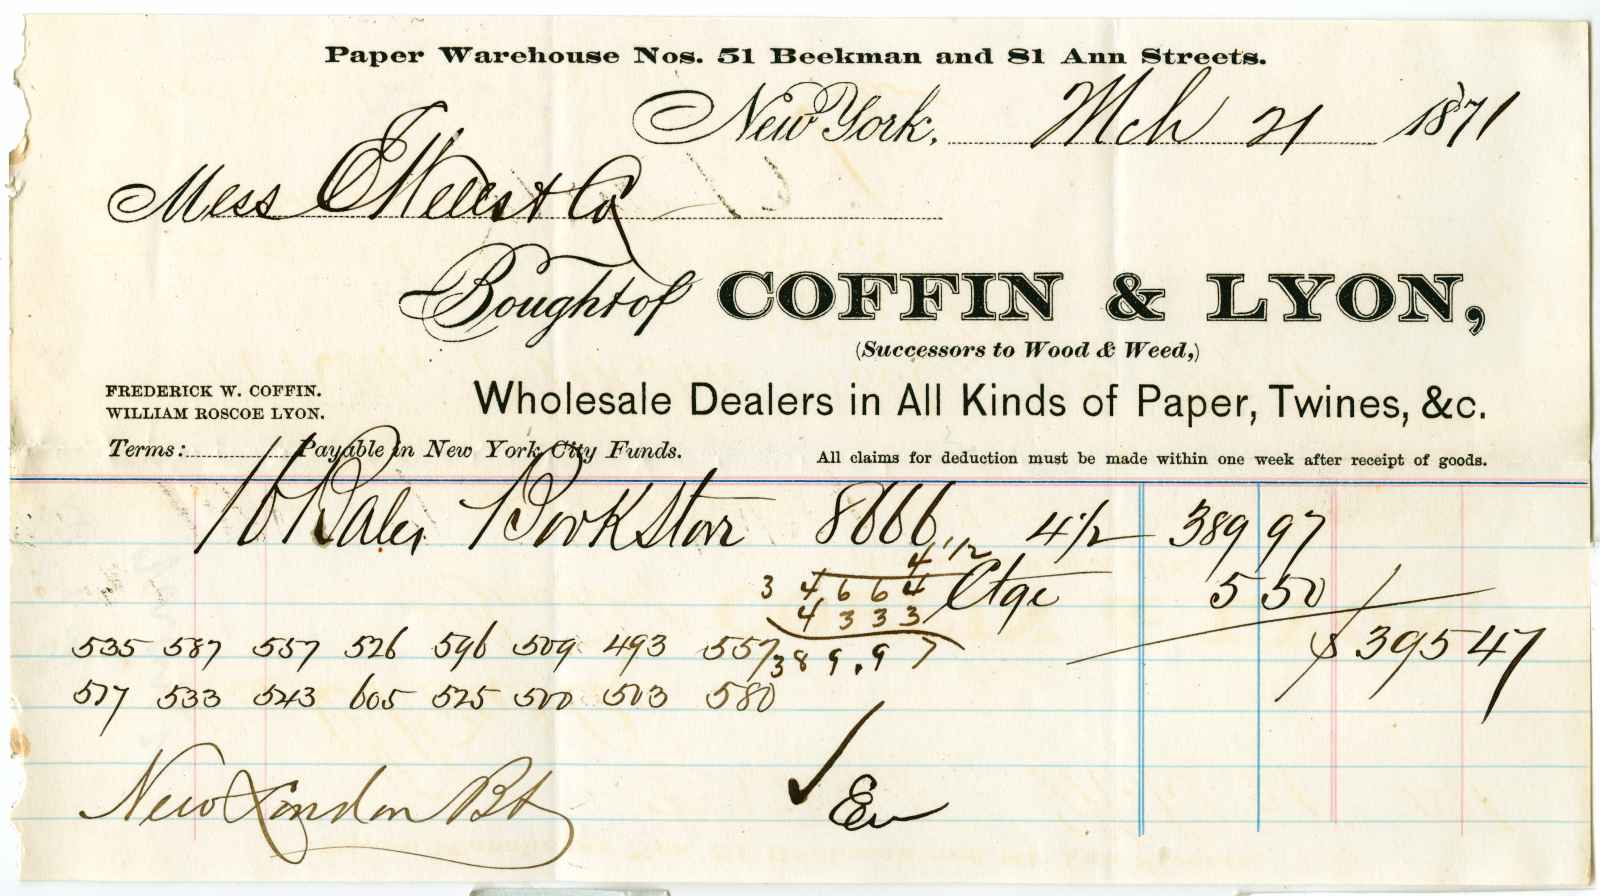 Paper Warehouse Nos. 51 Beekman and 81 Ann Streets.
New York, Mch 21 1871
Mess E Wells & Co
Bought of COFFIN & LYON,
(Successors to Wood & Weed,)
FREDERICK W. COFFIN.
WILLIAM ROSCOE LYON.
Wholesale Dealers in All Kinds of Paper, Twines, &c.
Terms: Payable in New York City Funds.
All claims for deduction must be made within one week after receipt of goods.
16 Bales Book 8666 4 1/2 389 97
4 1/2
3 4 6 6 4 Ctge 5 50
4 3 3 3
535 587 557 526 596 509 493 557
389.97
$ 395 47
517 533 543 605 525 500 503 580
New London Bt
Ew